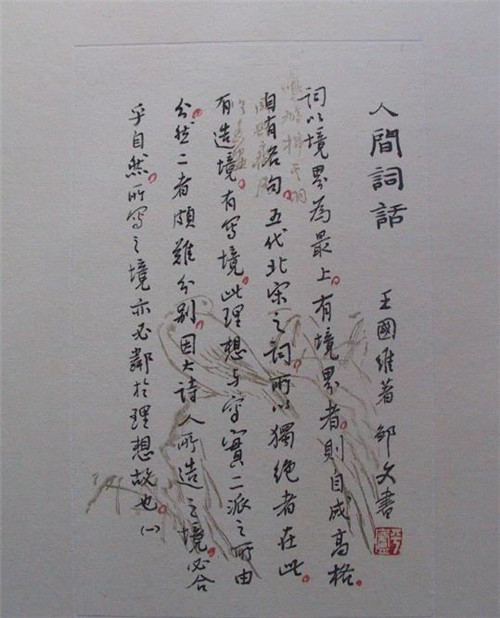 人間詞話
王國維著 邹文書
詞以境界為最上。有境界者。則自成高格。
自有名句。五代北宋之詞。所以獨絕者在此。
有造境。有寫境。此理想与寫實二派之所由
分。然二者頗難分別。因大詩人所造之境。必合
乎自然。所寫之境亦必鄰於理想故也。(一)